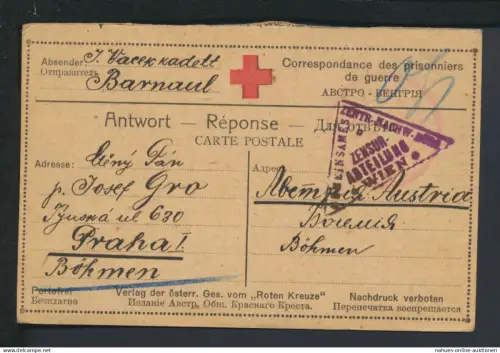 Absender: J. Vacek kadett
Отправитель
Barnaul
Correspondance des prisonniers
de guerre
АВСТРО - ВЕНГРІЯ
Antwort – Réponse – Для отвѣта
CARTE POSTALE
GEMEINSAMES ZENTR. NACHW.
ZENSUR-
ABTEILUNG
WIEN
Adresse: Ctěný Pán
p. Josef Gro
ul 630
Praha I
Böhmen
Адрес
Austria
Богемія
Böhmen
Portofrei
Безплатно
Verlag der österr. Ges. vom „Roten Kreuze“
Изданіе Австр. Общ. Краснаго Креста.
Nachdruck verboten
Перепечатка воспрещается
www.nahues-online-auktionen.de